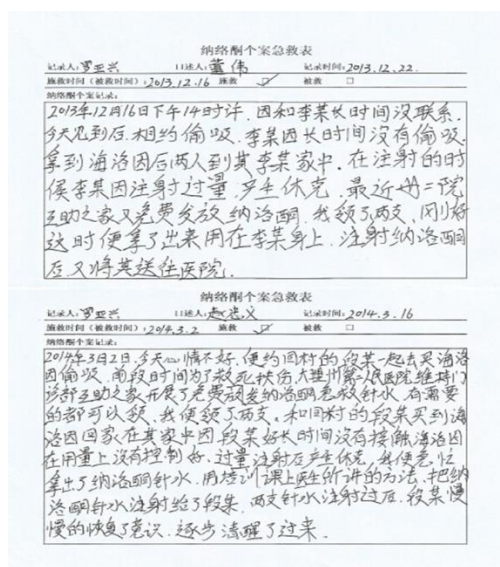 纳络酮个案急救表
记录人:罗亚兴 口述人:董伟 记录时间:2013.12.22.
施救时间(被救时间):2013.12.16 施救 ☑ 被救 □
纳络酮个案记录:
2013年12月16日下午14时许.因和李某长时间没联系.
今天见到后.相约偷吸.李某因长时间没有偷吸.
拿到海洛因后两人到其李某家中.在注射的时
候李某因注射过量.产生休克.最近州二院
互助之家又免费发放纳洛酮.我领了两支.刚好
这时便拿了出来用在李某身上.注射纳洛酮
后又将其送往医院.
纳络酮个案急救表
记录人:罗亚兴 口述人:赵忠义 记录时间:2014.3.16
施救时间(被救时间):2014.3.2 施救 ☑ 被救 □
纳络酮个案记录:
2014年3月2日.今天心情不好.便约同村的段某一起去买海洛
因偷吸.前段时间为了救死扶伤.大理州第二人民医院维持门
诊部互助之家开展了免费发放纳洛酮急救针水.有需要
的都可以领.我便领了两支.和同村的段某买到海
洛因回家在其家中因段某好长时间没有接触海洛因
在用量上没有控制好.过量注射后产生休克.我便急忙
拿出了纳洛酮针水.用培训课上医生所讲的方法.把纳
洛酮针水注射给了段某.两支针水注射过后.段某慢
慢的恢复了意识.逐步清醒了过来.